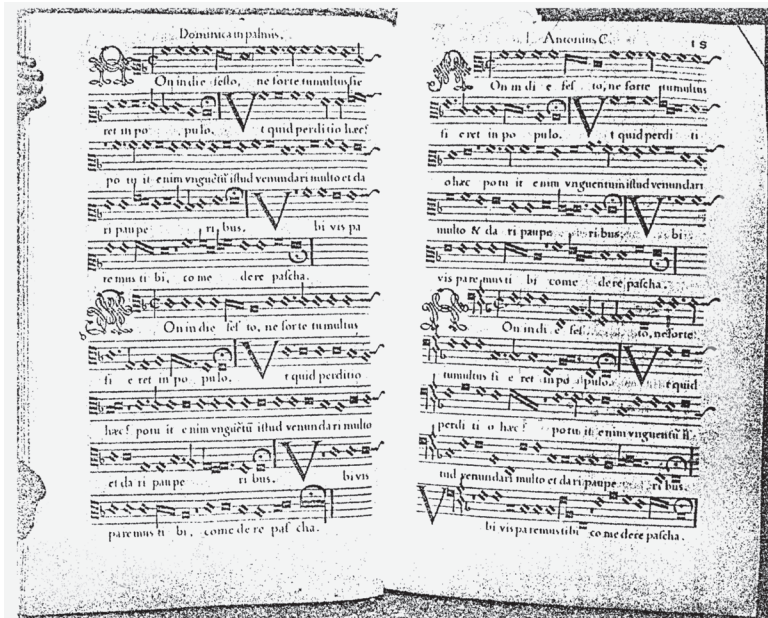 Dominica in palmis.
On in die festo, ne forte tumultus fie
ret in po pulo. Vt quid perditio hæc?
po tu it enim vnguẽtũ istud venundari multo et da
ri paupe ri bus. V bi vis pa
remus ti bi, co me dere pascha.
On in die fes to, ne forte tumultus
fi e ret in po pu lo. V t quid perditio
hæc? potu it enim vnguẽtũ istud venundari multo
et da ri paupe ri bus. V bi vis
paremus ti bi, come de re pas cha.
Antonius C. 15
On in di e fes to, ne forte tumultus
fi e ret in po pulo. V t quid perdi ti
o hæc potu it enim vnguentum istud venundari
multo & da ri paupe ri bus. V bi
vis pare mus ti bi come de re pascha.
On in di e fes to, ne forte
tumultus fi e ret in po pulo. V t quid
perdi ti o hæc? potu it enim vnguentũ is
tud venundari multo et da ri paupe ri bus.
V bi vis paremus tibi co me dere pascha.